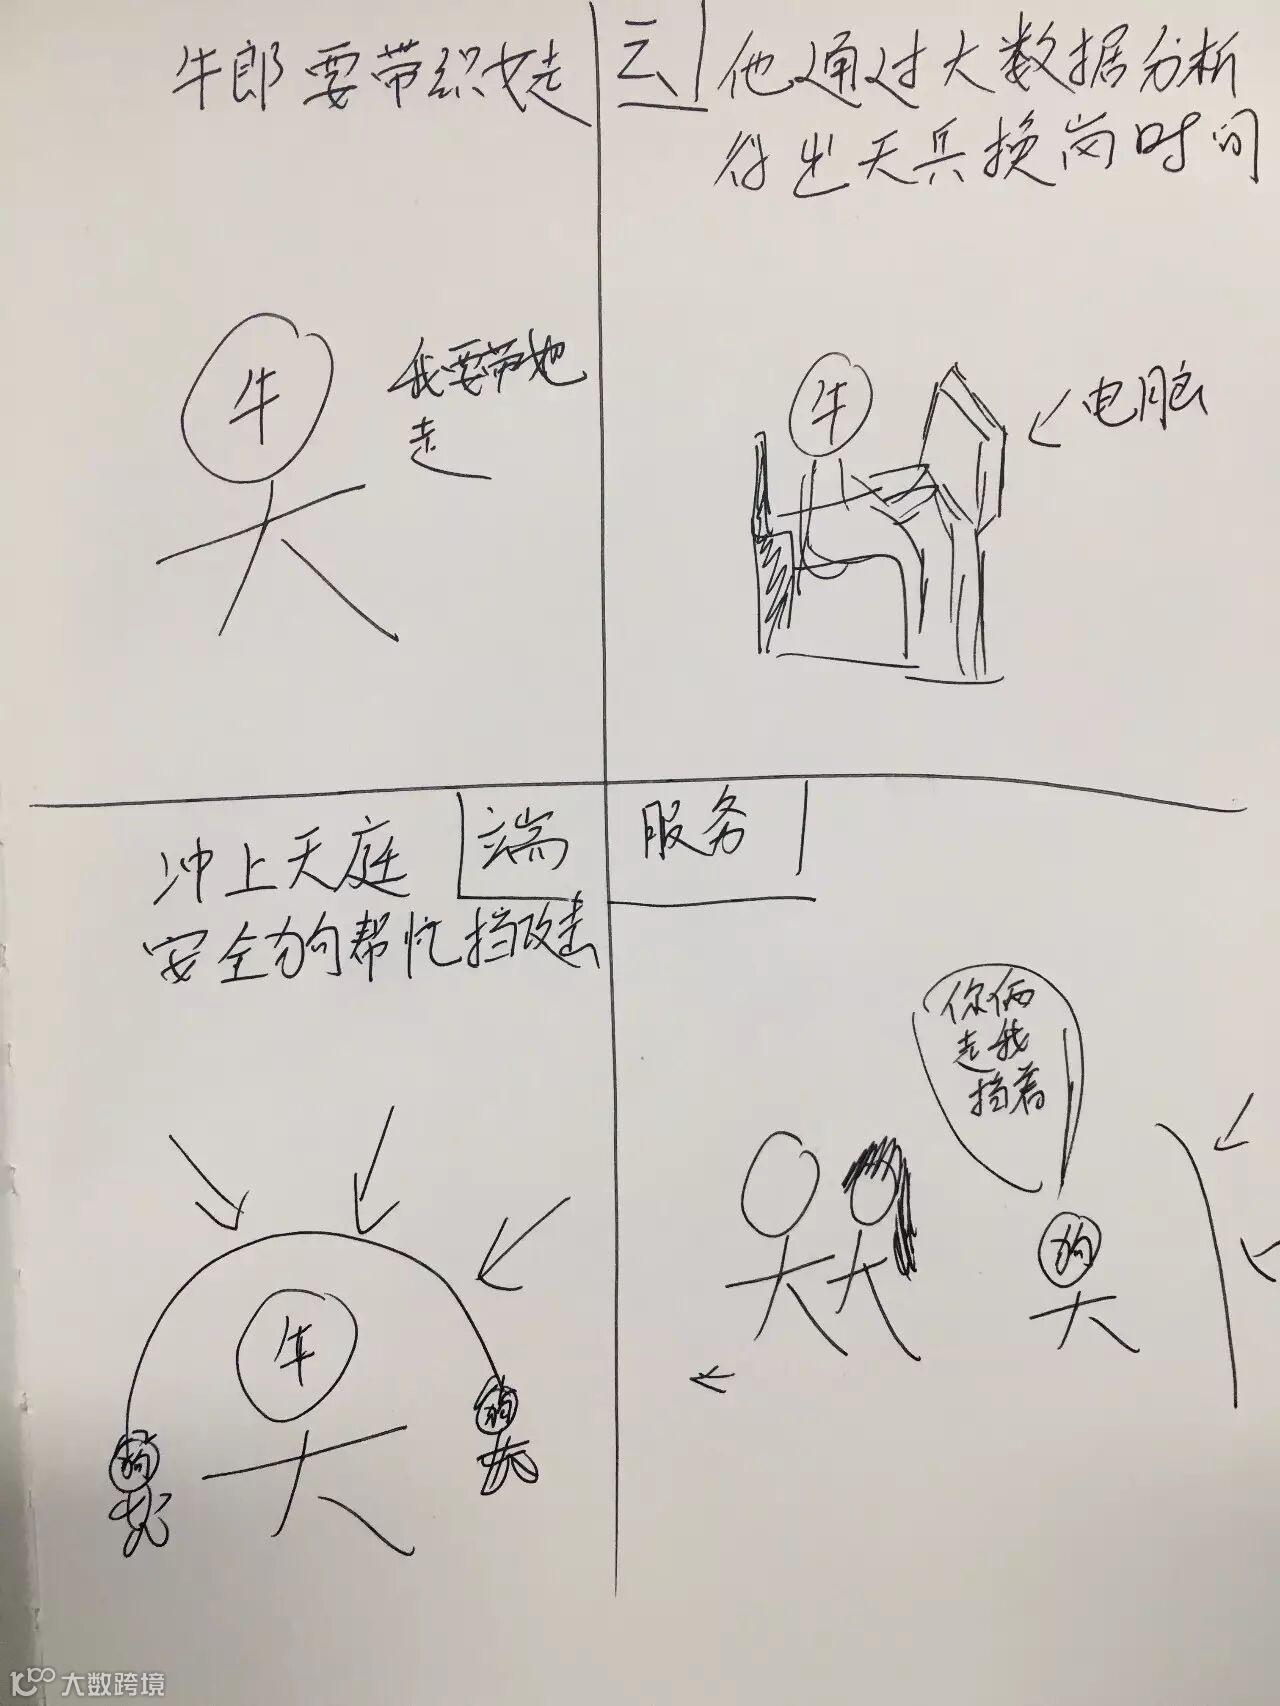 牛郎要带织女走
我要带她
走
云
他通过大数据分析
得出天兵换岗时间
牛
电脑
牛
冲上天庭
端
安全狗帮忙挡攻击
牛
狗
狗
服务
你俩
走我
挡着
狗
大数跨境